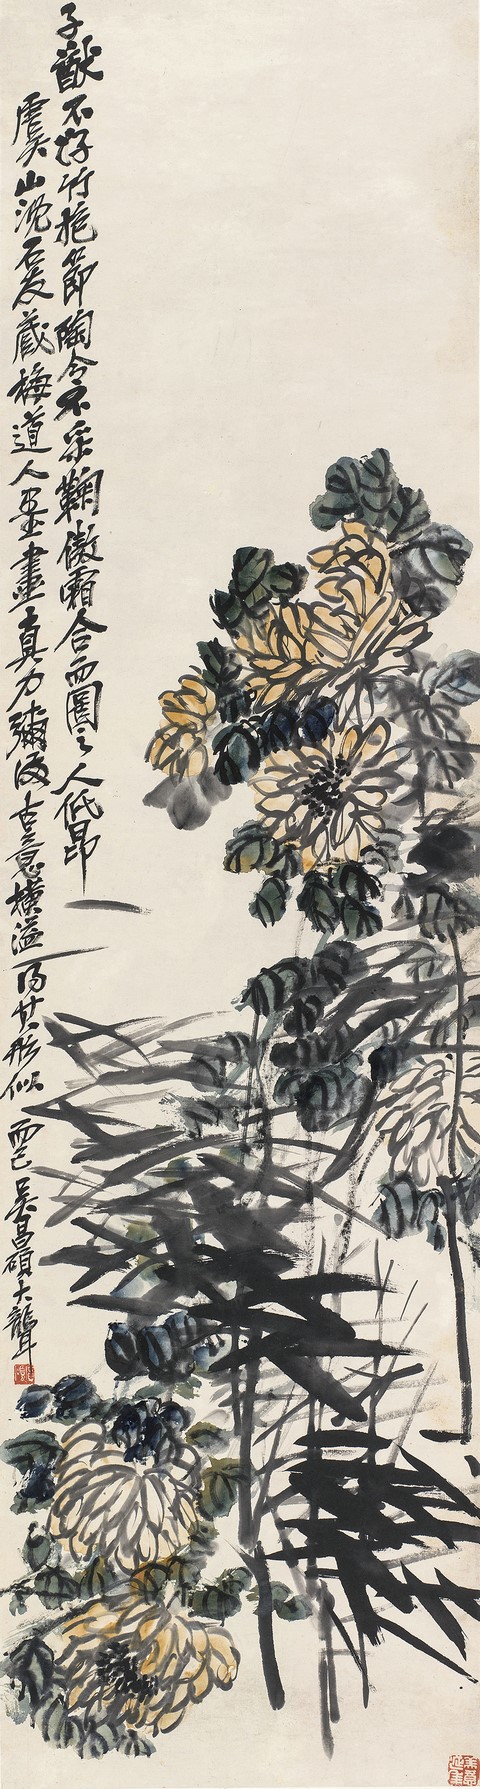 子猷不好竹抱節陶令不采鞠傲霜合而圖之人低昂
虞山沈石友藏梅道人墨畫真力彌滿古意橫溢得其形似
而已吳昌碩大聾